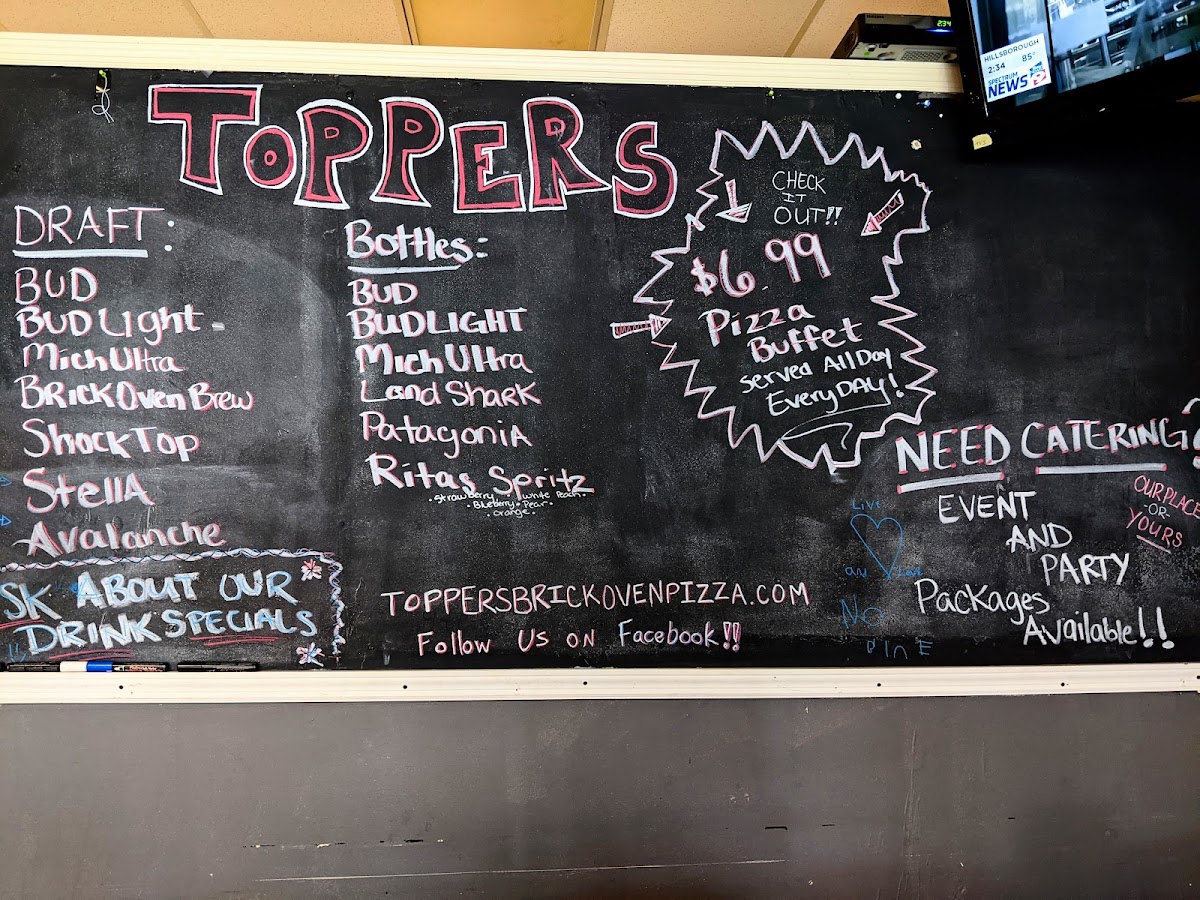 TOPPERS
DRAFT:
BUD
BUD Light
Mich Ultra
BRick Oven Brew
Shock Top
StellA
Avalanche
SK ABOUT OUR
DRINK SPECIALS
Bottles:
BUD
BUDLIGHT
Mich Ultra
Land Shark
PatagoniA
Ritas Spritz
• Strawberry • • White Peach •
• Blueberry • Pear •
• Orange •
CHECK
IT
OUT!!
$6.99
Pizza
Buffet
Served All Day
Every DAY!
TOPPERSBRICKOVENPIZZA.COM
Follow Us on Facebook!!
NEED CATERING?
EVENT
AND
PARTY
Packages
Available!!
OUR PLACE
-OR-
YOURS
Live
Love
No
HILLSBOROUGH
2:34 85°
SPECTRUM
NEWS
2:34